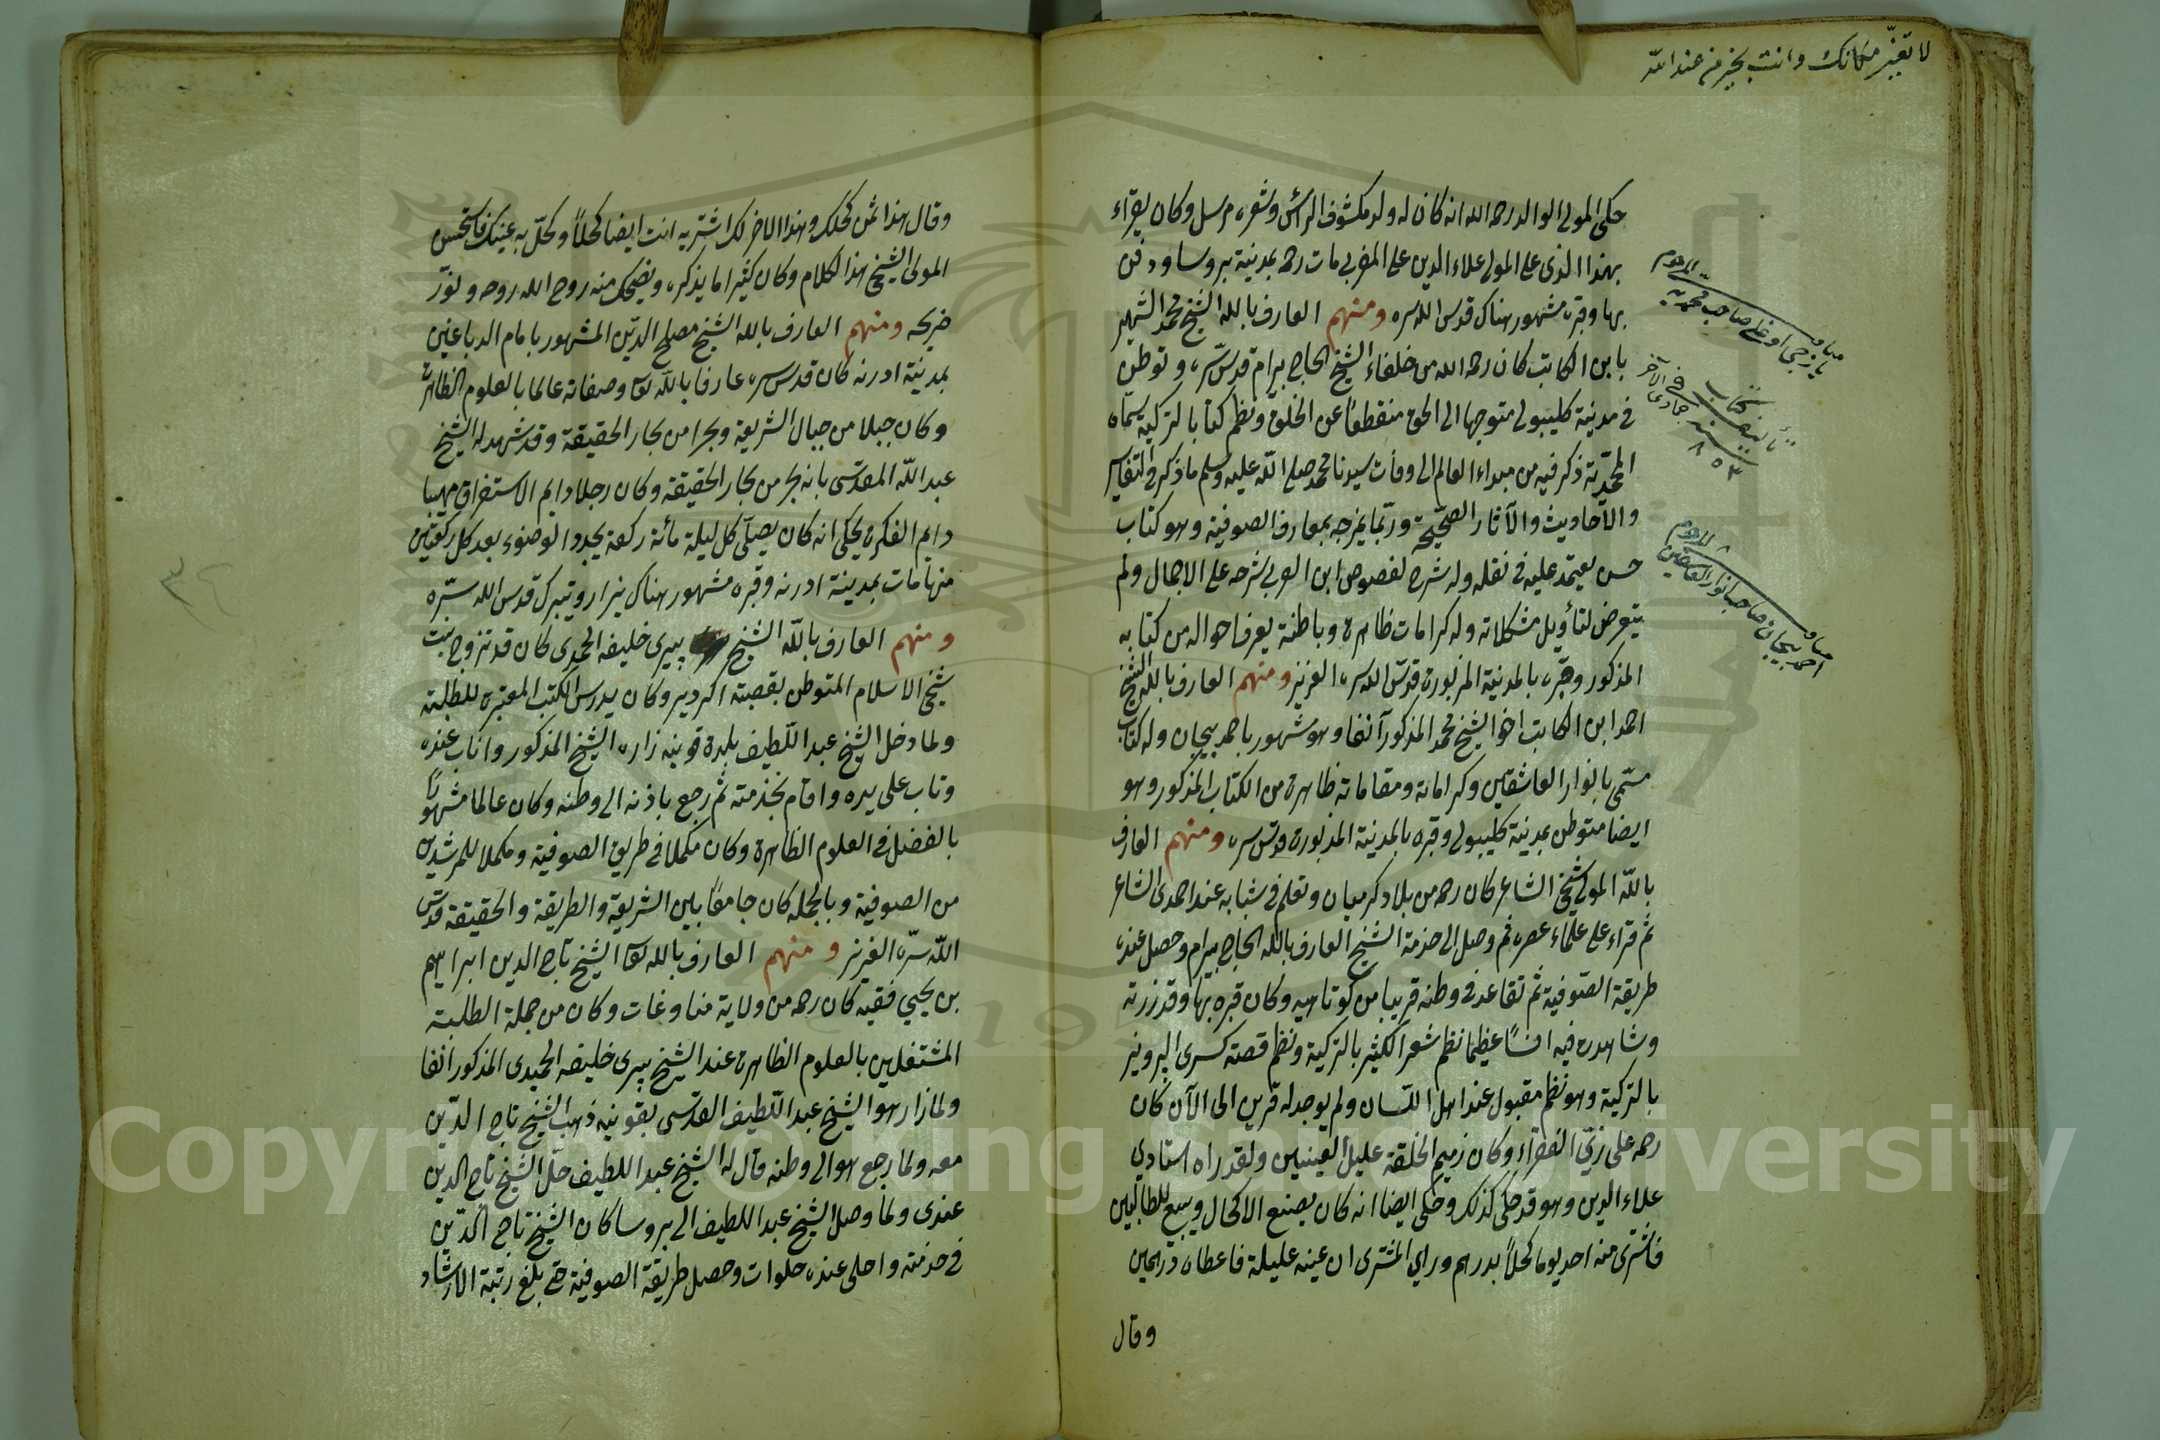 لا تغيّر مكانك وانت بخير من عند الله
حكى المولى الوالد رحمه الله انه كان له ولد مكشوف الرأس وشعره مرسل وكان يقراء
بهذا الذى على المولى علاء الدين على المغربى مات رحمه بمدينة بروسا ودفن
بها وقبره مشهور هناك قدس الله سره ومنهم العارف بالله الشيخ محمد الشهير
بابن الكاتب كان رحمه الله من خلفاء الشيخ الحاج بيرام قدس سره وتوطن
فى مدينة كليبولى متوجها الى الحق منقطعا عن الخلق ونظم كتابا بالتركية سماه
المحمدية ذكر فيه من مبداء العالم الى وفات سيدنا محمد صلى الله عليه وسلم ما ذكر فى التفاسير
والاحاديث والآثار الصحيحة وربما يمزجه بمعارف الصوفية وهو كتاب
حسن يعتمد عليه فى نقله وله شرح لفصوص ابن العربى شرحه على الاجمال ولم
يتعرض لتأويل مشكلاته وله كرامات ظاهرة وباطنة يعرف احواله من كتابه
المذكور وقبره بالمدينة المزبورة قدس الله سره العزيز ومنهم العارف بالله الشيخ
احمد ابن الكاتب اخو الشيخ محمد المذكور آنفا وهو مشهور باحمد بيجان وله كتاب
مسمى بانوار العاشقين وكراماته ومقاماته ظاهرة من الكتاب المذكور وهو
ايضا متوطن بمدينة كليبولى وقبره بالمدينة المذبورة قدس سره ومنهم العارف
بالله المولى شيخى الشاعر كان رحمه من بلاد كرميان وتعلم فى شبابه عند احمدى الشاعر
ثم قراء على علماء عصره ثم وصل الى خدمة الشيخ العارف بالله الحاج بيرام وحصل عنده
طريقة الصوفية ثم تقاعد فى وطنه قريبا من كوتاهيه وكان قبره بها وقد زرته
وشاهدت فيه انسا عظيما نظم شعرا كثيرا بالتركية ونظم قصة كسرى ابرويز
بالتركية وهو نظم مقبول عند اهل اللسان ولم يوجد له قرين الى الآن كان
رحمه على زىّ الفقراء وكان زميم الخلقة عليل العينين ولقد راه استادى
علاء الدين وهو قد حكى كذلك وحكى ايضا انه كان يصنع الاكحال ويبيع للطالبين
فاشترى منه احد يوما كحلا بدرهم وراى المشترى ان عينه عليلة فاعطاه درهمين
وقال
مناو المرحوم
يازجى اوغلى صاحب محمديه
تأليف كتاب
فى جمادى الآخر
سنة ٨٥٣
مناو المرحوم
احمد بيجان صاحب انوار العاشقين
وقال هذا ثمن كحلك وهذا الاخر لك اشتر به انت ايضا كحلا وكحل به عينيك فاستحسن
المولى الشيخ هذا الكلام وكان كثيرا ما يذكره ويضحك منه روح الله روحه ونور
ضريحه ومنهم العارف بالله الشيخ مصلح الدين المشهور بامام الدباغين
بمدينة ادرنه كان قدس سره عارفا بالله تعا وصفاته عالما بالعلوم الظاهرة
وكان جبلا من جبال الشريعة وبحرا من بحار الحقيقة وقد شهد له الشيخ
عبد الله المقدسى بانه بحر من بحار الحقيقة وكان رجلا دايم الاستغراق مهيبا
دايم الفكرة يحكى انه كان يصلى كل ليلة مائة ركعة يجدد الوضوء بعد كل ركعتين
منها مات بمدينة ادرنه وقبره مشهور هناك يزار ويتبرك قدس الله سره
ومنهم العارف بالله الشيخ پيرى خليفه الحميدى كان قد تزوج بنت
شيخ الاسلام المتوطن بقصبة اكردير وكان يدرس الكتب المعتبرة للطلبة
ولما دخل الشيخ عبد اللطيف بلدة قونيه زاره الشيخ المذكور واناب عنده
وتاب على يده واقام بخدمته ثم رجع باذنه الى وطنه وكان عالما مشهورا
بالفضل فى العلوم الظاهرة وكان مكملا فى طريق الصوفية ومكملا للمرشدين
من الصوفية وبالجمله كان جامعا بين الشريعة والطريقة والحقيقة قدس
الله سره العزيز ومنهم العارف بالله تعا الشيخ تاج الدين ابراهيم
بن يحيى فقيه كان رحمه من ولاية مناوغات وكان من جملة الطلبة
المشتغلين بالعلوم الظاهرة عند الشيخ پيرى خليفه الحميدى المذكور انفا
ولما زار هو الشيخ عبد اللطيف القدسى بقونيه ذهب الشيخ تاج الدين
معه ولما رجع هو الى وطنه قال له الشيخ عبد اللطيف خلّ الشيخ تاج الدين
عندى ولما وصل الشيخ عبد اللطيف الى بروسا كان الشيخ تاج الدين
فى خدمته واحلى عنده خلوات وحصل طريقة الصوفية حتى بلغ رتبة الارشاد
٣٤